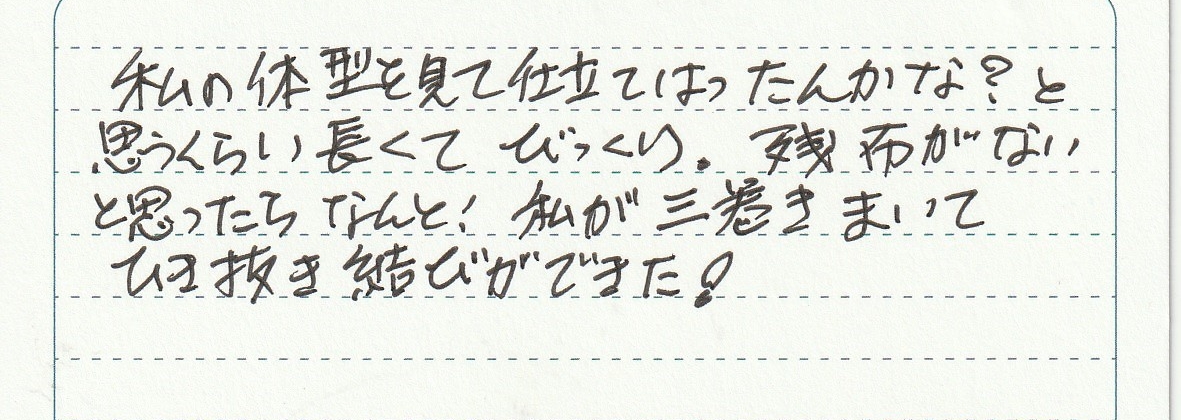 私の体型を見て仕立てはったんかな?と
思うくらい長くてびっくり。残布がない
と思ったらなんと!私が三巻きまいて
ひき抜き結びができた!